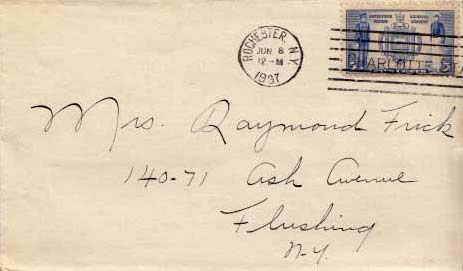 ROCHESTER, N.Y.
JUN 8
12-M
1937
CHARLOTTE STA
Mrs. Raymond Frick
140-71 Ash Avenue
Flushing
N.Y.